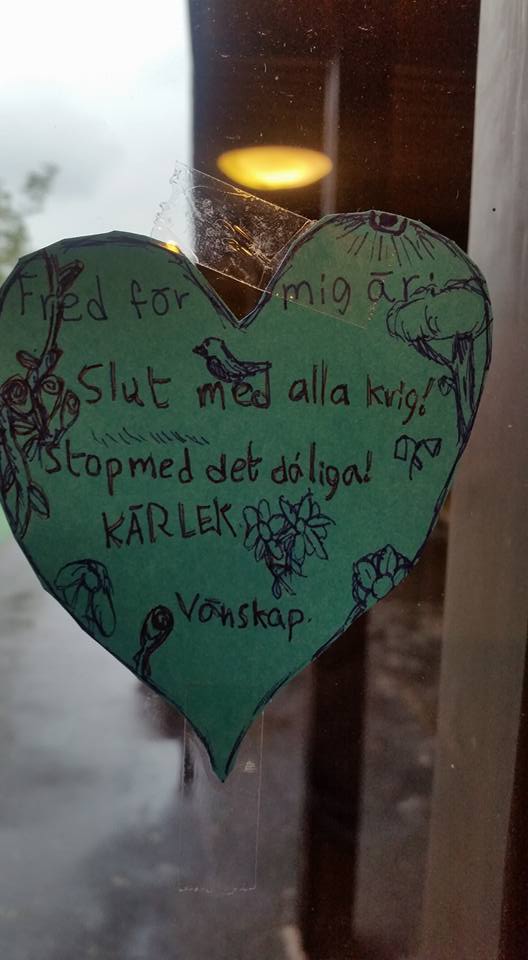 Fred för mig är:
Slut med alla krig!
Stop med det dåliga!
KÄRLEK
Vänskap.